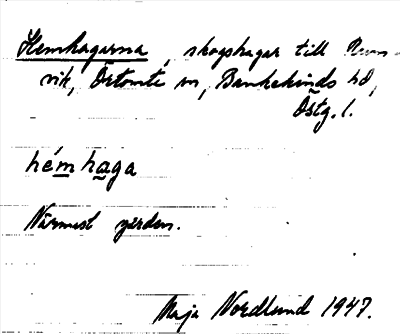 Hemhagarna, skogshagar till Runn-
vik, Örtomta sn, Bankekinds hd,
Östg. l.
hémhaga
Närmast gården.
Maja Nordlund 1947.